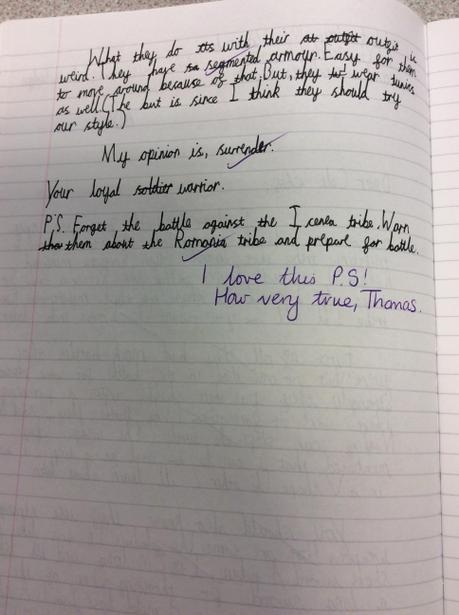 What they do with their outfit is
weird. They have segmented armour. Easy for them
to move around because of that. But, they wear tunics
as well (The but is since I think they should try
our style.)
My opinion is, surrender.
Your loyal soldier warrior.
P.S. Forget the battle against the Icenea tribe. Warn
them about the Romania tribe and prepare for battle.
I love this P.S!
How very true, Thomas.